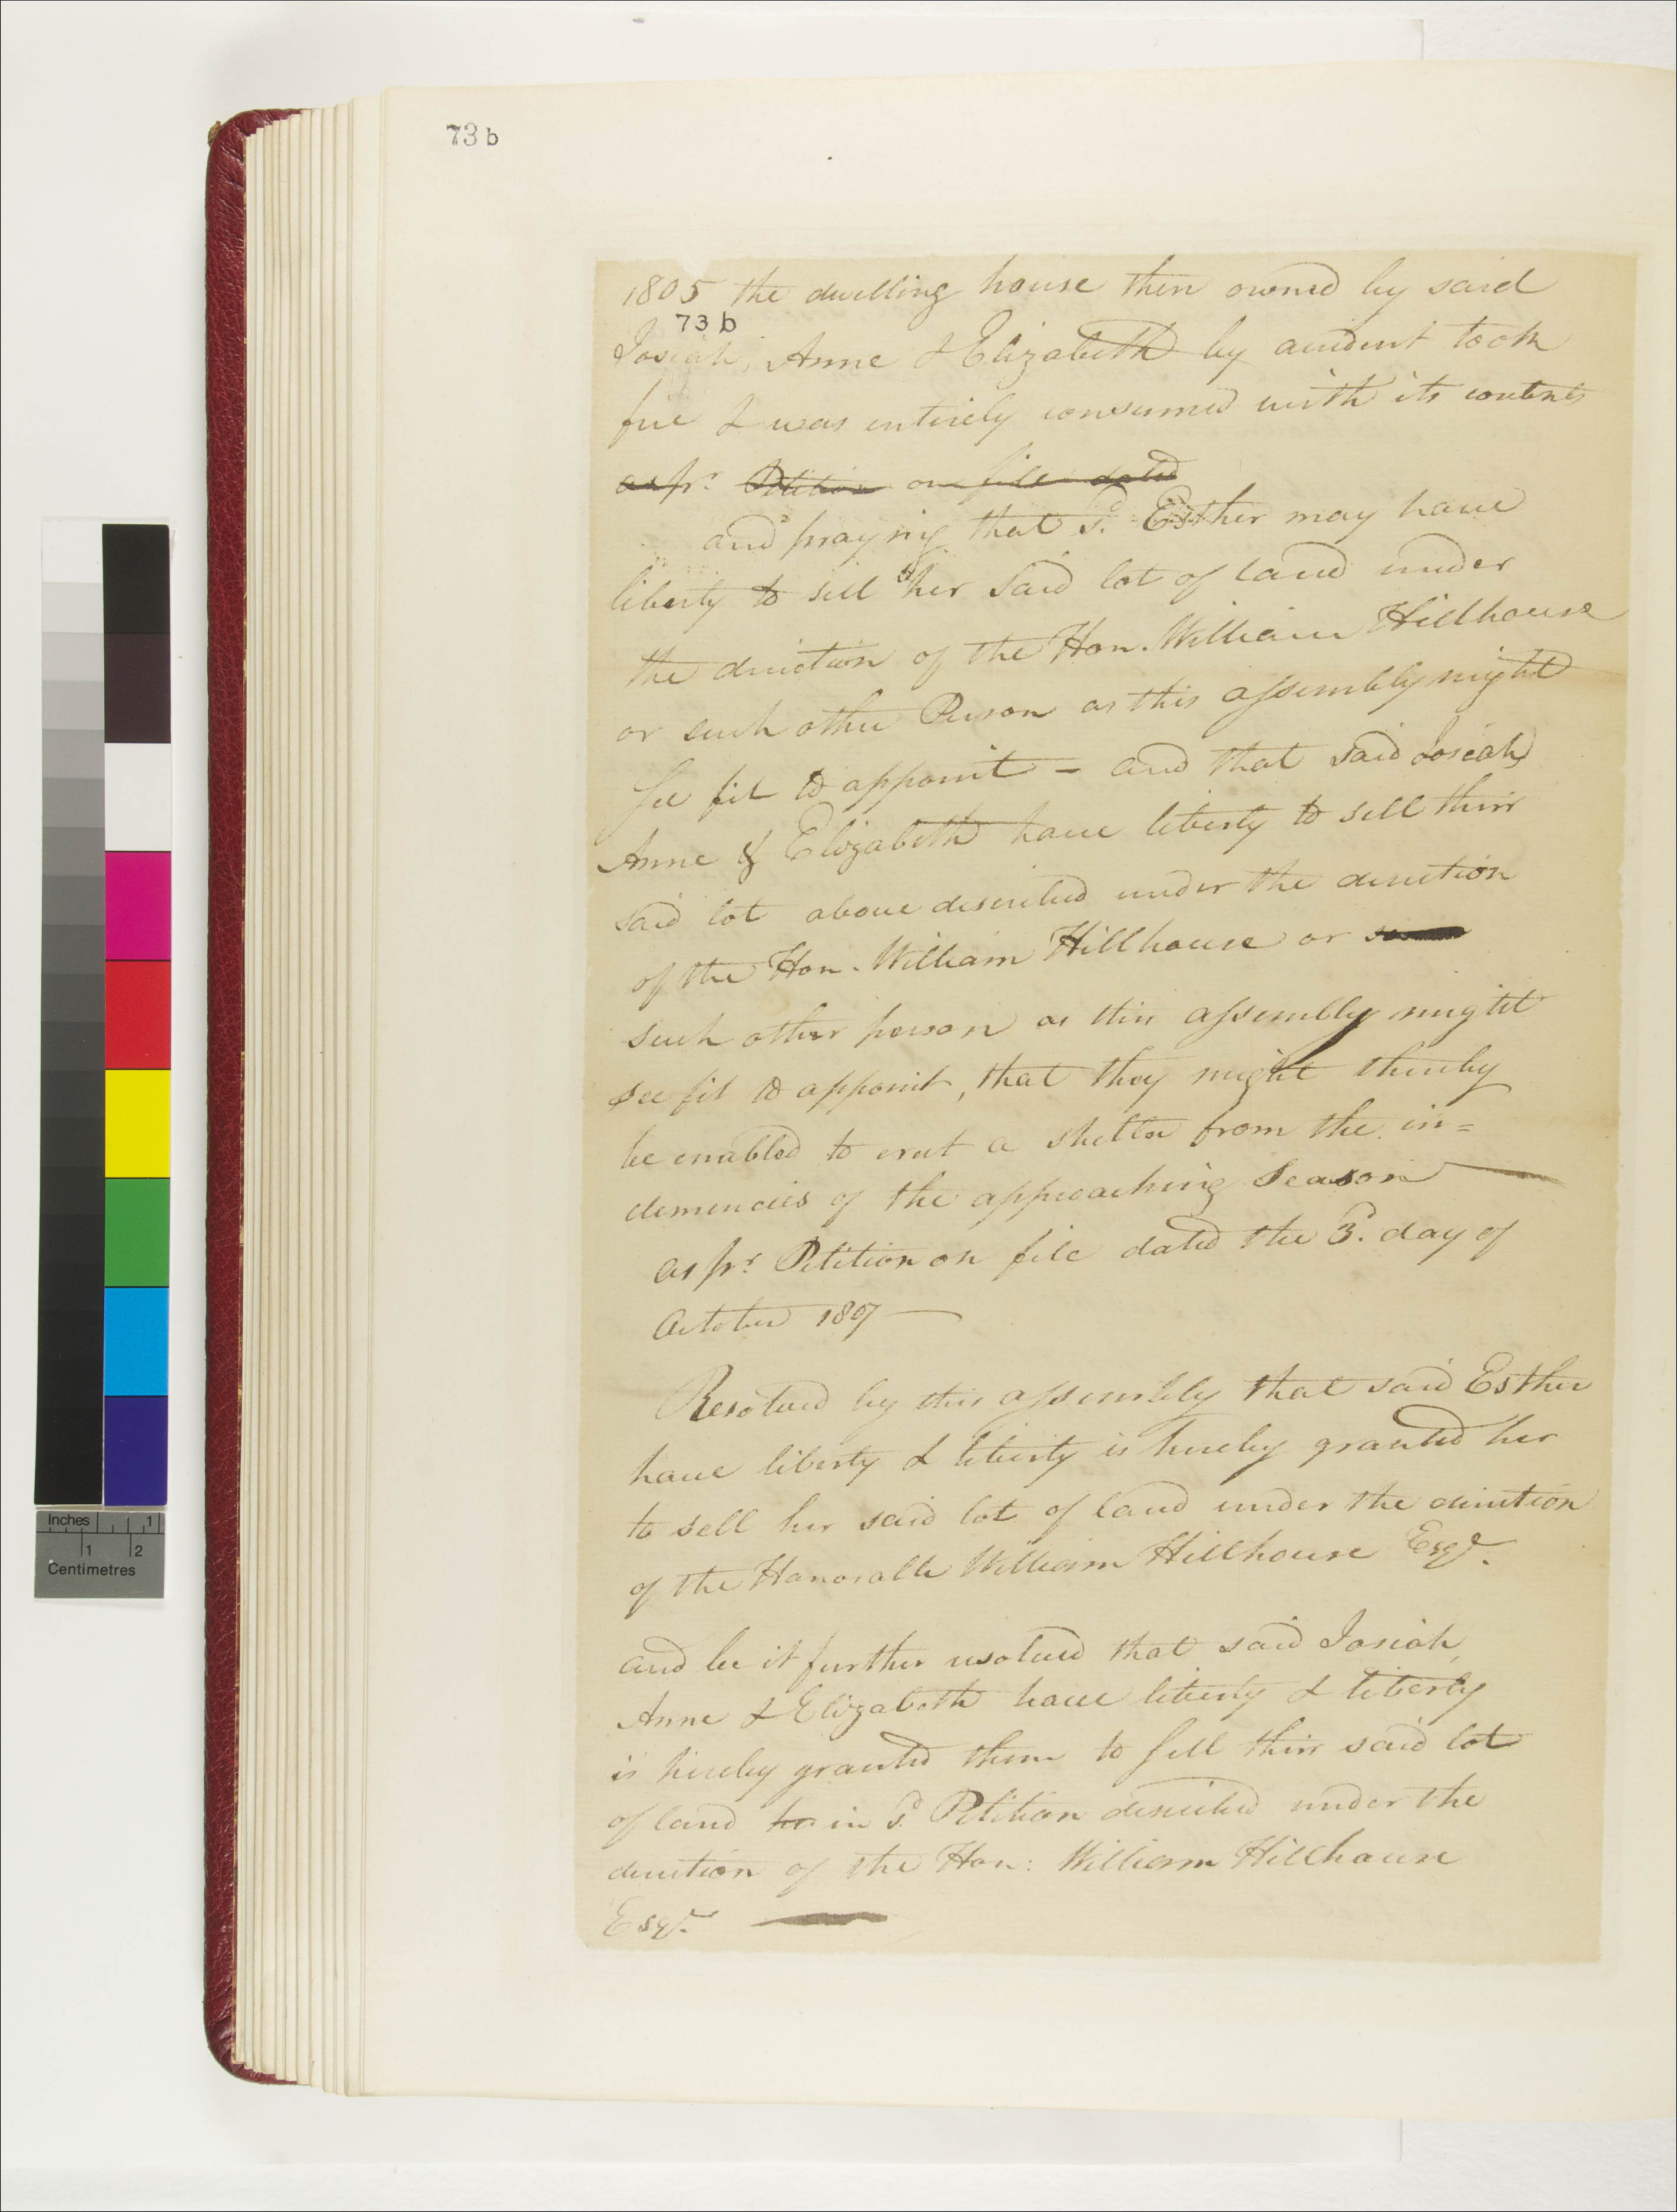 73 b
1805 the dwelling house then owned by said
73 b
Josiah, Anne & Elizabeth by accident took
fire & was entirely consumed with its contents
as pr. Petition on file dated
and praying that Sd. Esther may have
liberty to sell her said lot of land under
the direction of the Hon. William Hillhouse
or such other Person as this assembly might
See fit to appoint - and that said Josiah
Anne & Elizabeth have liberty to sell their
said lot above described under the direction
of the Hon. William Hillhouse or
such other person as this assembly might
see fit to appoint, that they might thereby
be enabled to erect a shelter from the in=
clemencies of the approaching Season
as pr. Petition on file dated the 3d. day of
October 1807
Resolved by this assembly that said Esther
have liberty & liberty is hereby granted her
to sell her said lot of land under the direction
of the Honorable William Hillhouse Esqr.
and be it further resolved that said Josiah,
Anne & Elizabeth have liberty & liberty
is hereby granted them to sell their said lot
of land in Sd. Petition described under the
direction of the Hon: William Hillhouse
Esqr.
Inches 1
1 2
Centimetres